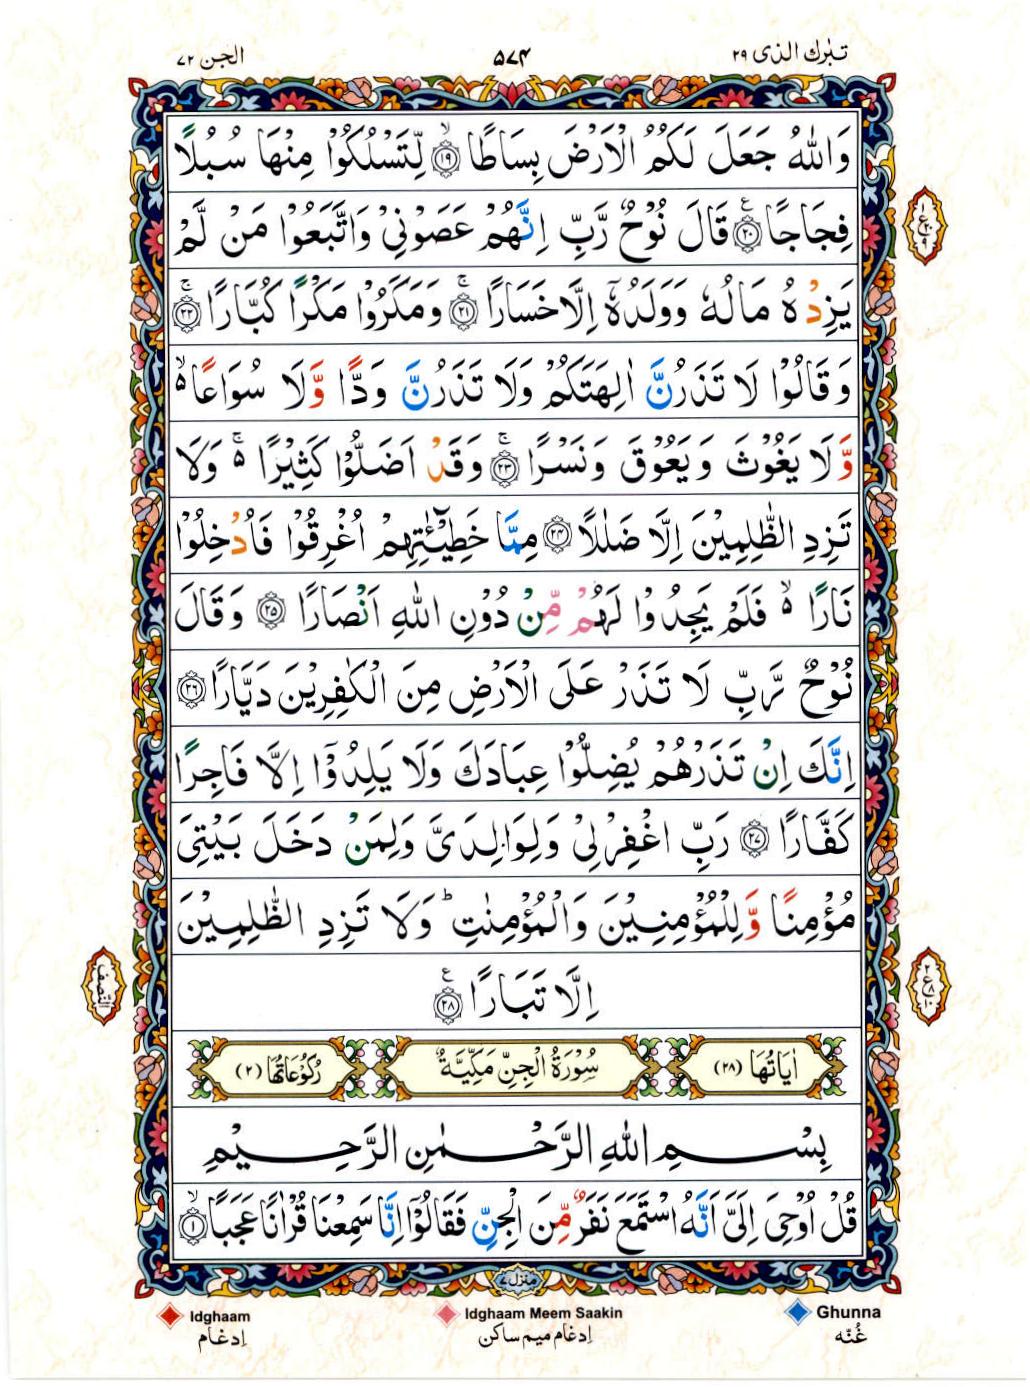 تبٰرك الذی ٢٩
٥٧٤
الجن ٧٢
وَاللّٰهُ جَعَلَ لَكُمُ الْاَرْضَ بِسَاطًا ۙ‏ ﴿۱۹﴾ لِّتَسْلُكُوْا مِنْهَا سُبُلًا
فِجَاجًا ﴿۲۰﴾ ع قَالَ نُوْحٌ رَّبِّ اِنَّهُمْ عَصَوْنِیْ وَاتَّبَعُوْا مَنْ لَّمْ
یَزِدْهُ مَالُهٗ وَوَلَدُهٗۤ اِلَّا خَسَارًا ۚ ﴿۲۱﴾ وَمَكَرُوْا مَكْرًا كُبَّارًا ۚ ﴿۲۲﴾
وَقَالُوْا لَا تَذَرُنَّ اٰلِهَتَكُمْ وَلَا تَذَرُنَّ وَدًّا وَّلَا سُوَاعًا ۙ۬
وَّلَا یَغُوْثَ وَیَعُوْقَ وَنَسْرًا ۚ ﴿۲۳﴾ وَقَدْ اَضَلُّوْا كَثِیْرًا ۚ۬ وَلَا
تَزِدِ الظّٰلِمِیْنَ اِلَّا ضَلٰلًا ﴿۲۴﴾ مِمَّا خَطِیْٓـٰٔتِهِمْ اُغْرِقُوْا فَاُدْخِلُوْا
نَارًا ۙ۬ فَلَمْ یَجِدُوْا لَهُمْ مِّنْ دُوْنِ اللّٰهِ اَنْصَارًا ﴿۲۵﴾ وَقَالَ
نُوْحٌ رَّبِّ لَا تَذَرْ عَلَی الْاَرْضِ مِنَ الْكٰفِرِیْنَ دَیَّارًا ﴿۲۶﴾
اِنَّكَ اِنْ تَذَرْهُمْ یُضِلُّوْا عِبَادَكَ وَلَا یَلِدُوْۤا اِلَّا فَاجِرًا
كَفَّارًا ﴿۲۷﴾ رَبِّ اغْفِرْ لِیْ وَلِوَالِدَیَّ وَلِمَنْ دَخَلَ بَیْتِیَ
مُؤْمِنًا وَّلِلْمُؤْمِنِیْنَ وَالْمُؤْمِنٰتِ ؕ وَلَا تَزِدِ الظّٰلِمِیْنَ
النّصف
اِلَّا تَبَارًا ﴿۲۸﴾ ع
اٰیَاتُهَا (٢٨)
سُوْرَةُ الْجِنِّ مَكِّیَّةٌ
رُكُوْعَاتُهَا (٢)
بِسْمِ اللّٰهِ الرَّحْمٰنِ الرَّحِیْمِ
قُلْ اُوْحِیَ اِلَیَّ اَنَّهُ اسْتَمَعَ نَفَرٌ مِّنَ الْجِنِّ فَقَالُوْۤا اِنَّا سَمِعْنَا قُرْاٰنًا عَجَبًا ۙ ﴿۱﴾
منزل ٧
Idghaam
Idghaam Meem Saakin
Ghunna
اِدغام
اِدغام میم ساکن
غُنّه